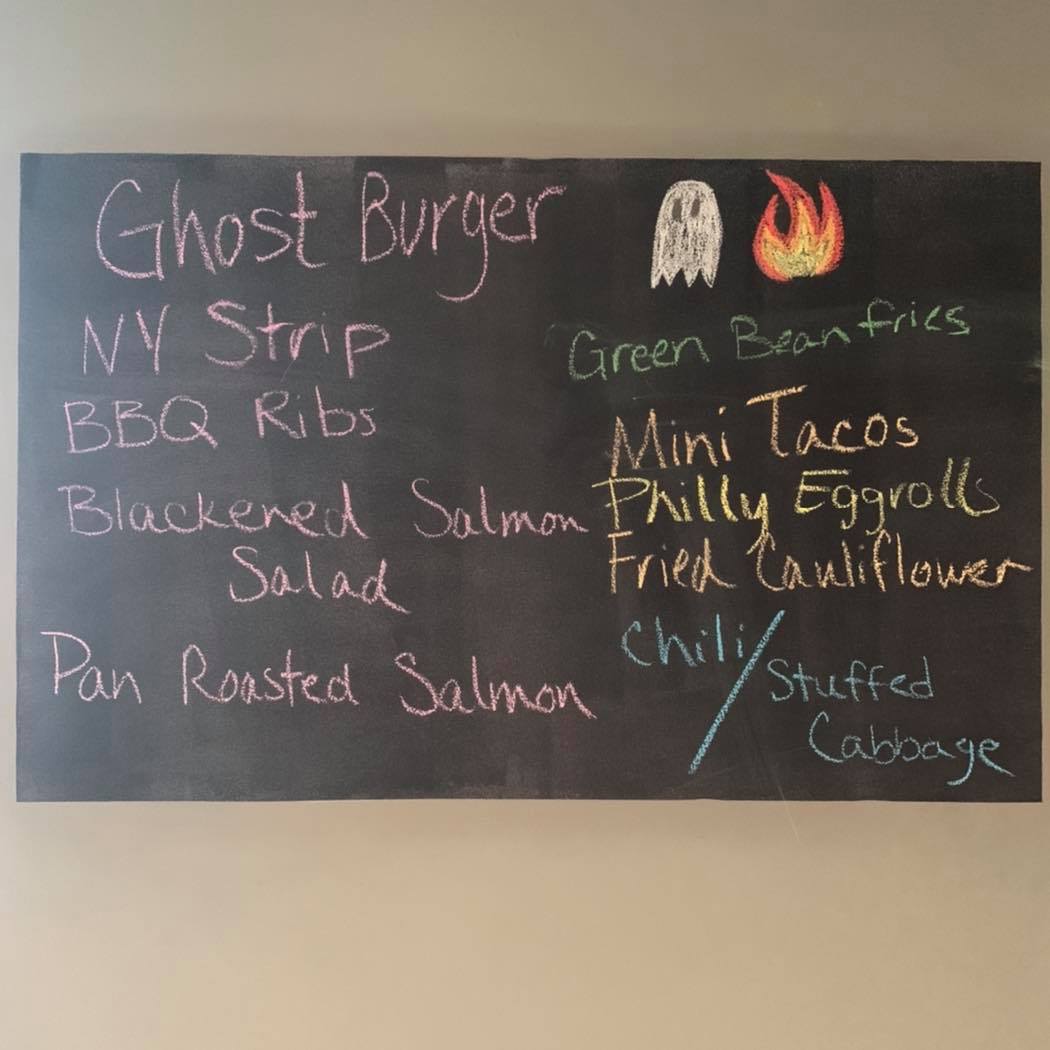 Ghost Burger
NY Strip
BBQ Ribs
Blackened Salmon
Salad
Pan Roasted Salmon
Green Bean fries
Mini Tacos
Philly Eggrolls
Fried Cauliflower
Chili/
Stuffed
Cabbage